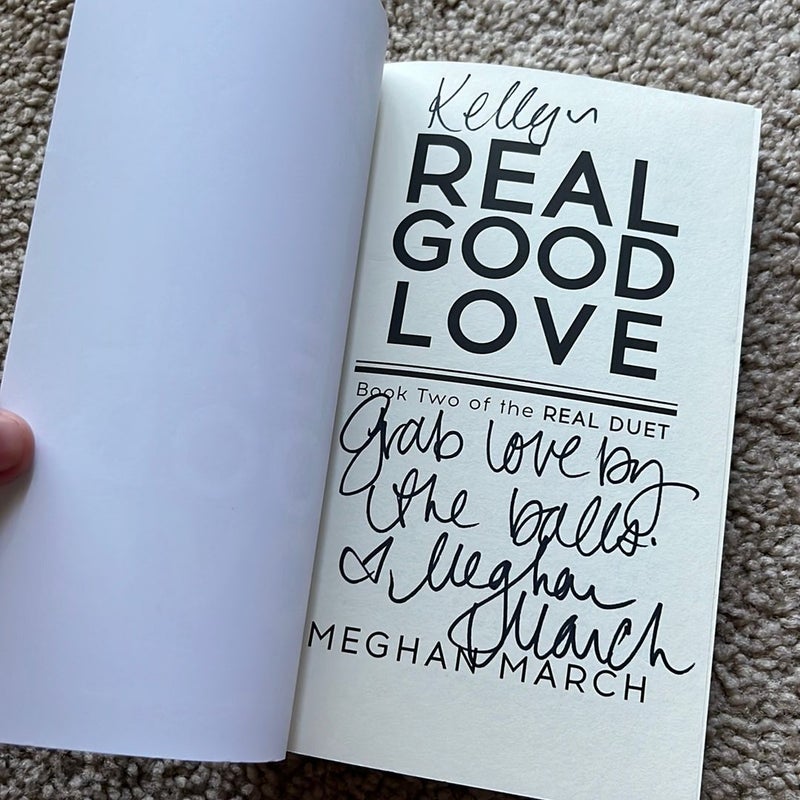 Kelly~
REAL
GOOD
LOVE
Book Two of the REAL DUET
Grab love by
the balls.
♡, Meghan
March
MEGHAN MARCH